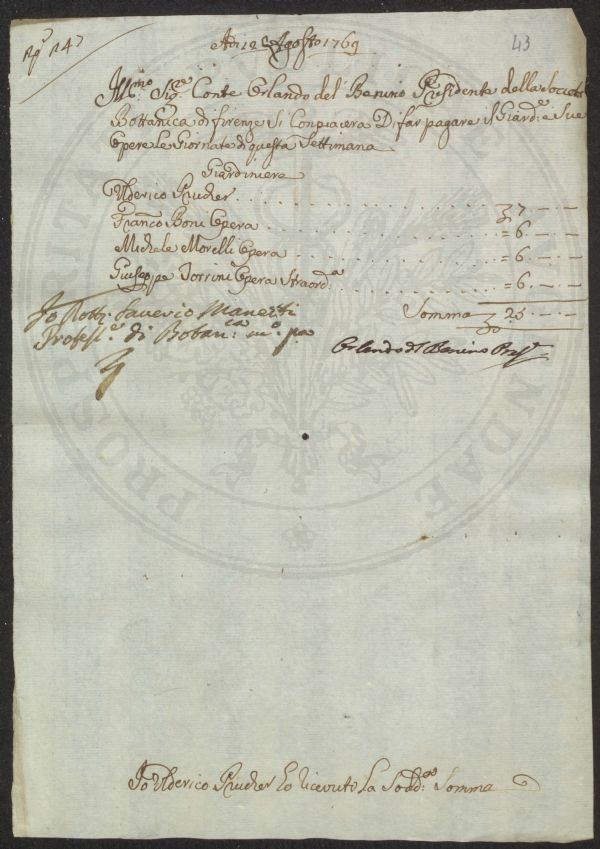 N.° 147
43
Adi 12 Agosto 1769
Ill:mo Sig:re Conte Orlando del Benino Presidente della Società
Bottanica di firenze Si Conpiacera Di far pagare il Giard:e e Sue
Opere Le Giornate di questa Settimana
Giardiniere
Ulderico Prucher . . . 7 — —
Franc:o Boni Opera . . . = 6 — —
Michele Morelli Opera . . . = 6 — —
Giuseppe Torrini Opera Straord:a . . . = 6 — —
Somma 25 — —
Io Dott: Saverio Manetti
Profess:e di Botan:ca m:o pa
Orlando del Benino Pres:e
Io Ulderico Prucher ho ricevuto La Sodd:a Somma
PROSPERITATI